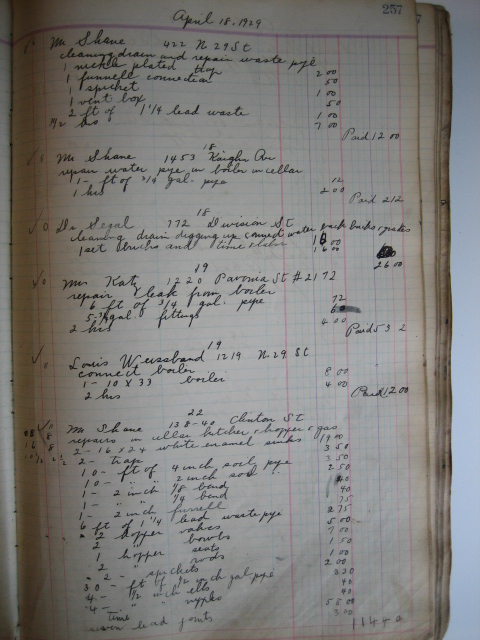 257
April 18, 1929
Mr Shane 422 N 29 St
cleaning drain and repair waste pipe
1 nickle plated trap 2 00
1 funnell connection 50
1 spicket 1 00
1 vent box 50
2 ft of 1 1/4 lead waste 1 00
hrs 7 00
Paid 12 00
18
Mr Shane 1453 Kaighn Av
repair water pipe in boiler in cellar
1- ft of 3/4 gal. pipe 12
1 hrs 2 00
Paid 2 12
18
Dr Segal 772 Division St
cleaning drain digging up connect water back bricks grates
1 set bricks and time 10 00
16 00
26 00
19
Mrs Katz 1220 Pavonia St # 2172
repair leak from boiler
6 ft of 3/4 gal. pipe 72
5 3/4 gal. fittings 60
2 hrs 4 00
Paid 5 3 2
19
Louis Weissband 1219 N. 29 St
connect boiler
1 - 10 X 33 boiler 8 00
2 hrs 4 00
Paid 12 00
22
Mr Shane 138-40 Clinton St
repairs in cellar kitchen, hopper & gas
2 - 16 x 24 white enamel sinks 14 00
2 - traps 3 50
10 - ft of 4 inch soil pipe 2 50
10 - " " 2 inch soil 2 50
1 - 2 inch 1/8 bend 40
1 - " " 1/4 bend 40
1 - 2 inch furrell 75
6 ft of 1 1/4 lead waste pipe 2 75
2 hopper valves 5 00
2 " bowls 7 00
1 hopper seats 1 50
2 " rods 1 00
2 - spickets 2 00
30 - ft of 1/2 inch gal pipe 3 20
4 - 1/2 inch ells 40
4 - " nipples 40
time 55 00
seven lead joints 3 00
114 40